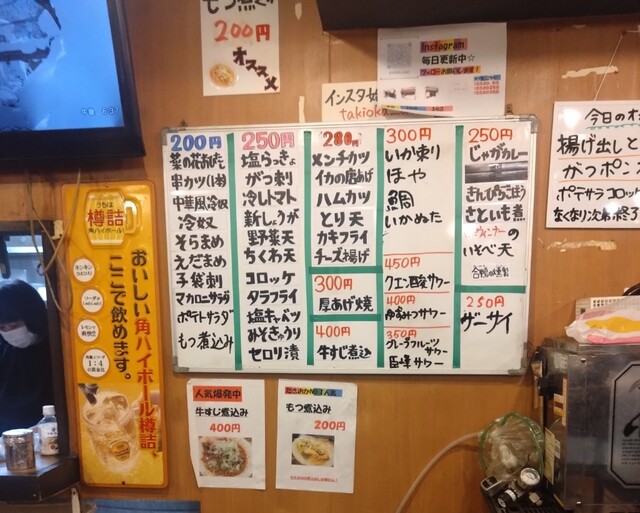 もつ煮込み
200円
オススメ
Instagram
毎日更新中☆
インスタ始
takioka
200円
菜の花おひたし
串カツ(1本)
中華風冷奴
冷奴
そらまめ
えだまめ
子袋刺
マカロニサラダ
ポテトサラダ
もつ煮込み
250円
塩らっきょ
ガツ刺
冷しトマト
新しょうが
野菜天
ちくわ天
コロッケ
タラフライ
塩キャベツ
みそきゅうり
セロリ漬
280円
メンチカツ
イカの唐あげ
ハムカツ
とり天
カキフライ
チーズ揚げ
300円
厚あげ焼
400円
牛すじ煮込
300円
いか刺り
ほや
鯛
いかぬた
450円
クエン酸サワー
400円
ゆずみつサワー
350円
グレープフルーツ
サワー
巨峰サワー
250円
じゃがカレー
きんぴらごぼう
さといも煮
ウィンナーの
いそべ天
合鴨の燻製
250円
ザーサイ
今日のオ
揚げ出しと
がつポン
ポテサラコロッ
なくなり次第終了
うちは
樽詰
角ハイボール!
おいしい角ハイボール樽詰、
ここで飲めます。
キンキン
ソーダ
レモンで
1:4
人気爆発中
牛すじ煮込み
400円
もつ煮込み
200円